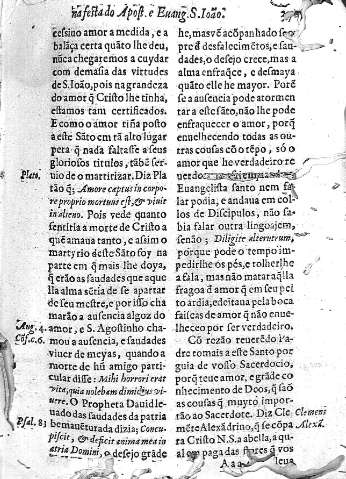 na festa do Apost. e Euang. S. Ioão.
cessiuo amor a medida, e a
balãça certa quãto lhe deu,
nuca chegaremos a cuydar
com demasia das virtudes
de S. Ioão, pois na grandeza
do amor q̃ Cristo lhe tinha,
estamos tam certificados.
E como o amor tiña posto
a este Sãto em tã alto lugar
pera q̃ nada faltasse a seus
gloriosos titulos, tãbẽ ser-
uio de o martirizar. Diz Pla
Plato.
tão q̃; Amore captus in corpo-
re proprio mortuus est, & viuit
in alieno. Pois vede quanto
sentiria a morte de Cristo a
quẽ amaua tanto, e assim o
martyrio deste Sãto foy na
parte em q̃ mais lhe doya,
q̃ erão as saudades que aque
lla alma sẽtia de se apartar
de seu mestre, e por isso cha
marão a ausencia algoz do
Aug. 4.
amor, e S. Agostinho cha-
Cõf. c. 6.
mou a ausencia, e saudades
viuer de meyas, quando a
morte de hũ amigo parti-
cular disse: Mihi horrori erat
vita, quia nolebam dimidius vi-
uere. O Propheta Dauid le-
uado das saudades da patria
Psal. 83
bemauẽturada dizia; Concu-
piscit, & deficit anima mea in
atria Domini, o desejo grãde
he, mas vẽ acõpanhado sẽ-
pre d desfalecimẽtos, e sau-
dades, o desejo crece, mas a
alma enfraq̃ce, e desmaya
quãto elle he mayor. Porẽ
se a ausencia pode atormen
tar a este sãto, não lhe pode
enfraquecer o amor, porq̃
enuelhecendo todas as ou-
tras cousas cõ o tẽpo, só o
amor que he verdadeiro re
Euangelista santo nem fa
lar podia, e andaua em col-
los de Discipulos, não sa-
bia falar outra lingoajem,
senão; Diligite alterutrum,
porque pode o tempo im-
pedirlhe os pés, e tolherlhe
a fala, mas não matar aq̃lla
fragoa d amor q̃ em seu pei
to ardia, e deitaua pela boca
faiscas de amor q̃ não enue-
lheceo por ser verdadeiro.
Cõ rezão reuerẽdo Pa-
dre tomais a este Santo por
guia de vosso Sacerdocio,
porq̃ teue amor, e grãde co
nhecimento de Deos, q̃ são
as cousas q̃ muyto impor-
tão ao Sacerdote. Diz Cle
Clemens
mẽte Alexãdrino, q̃ se cõpa
Alexã.
ra Cristo N. S. a abelha, a qual
em q̃ paga das flores q̃ vos
A a a
leua